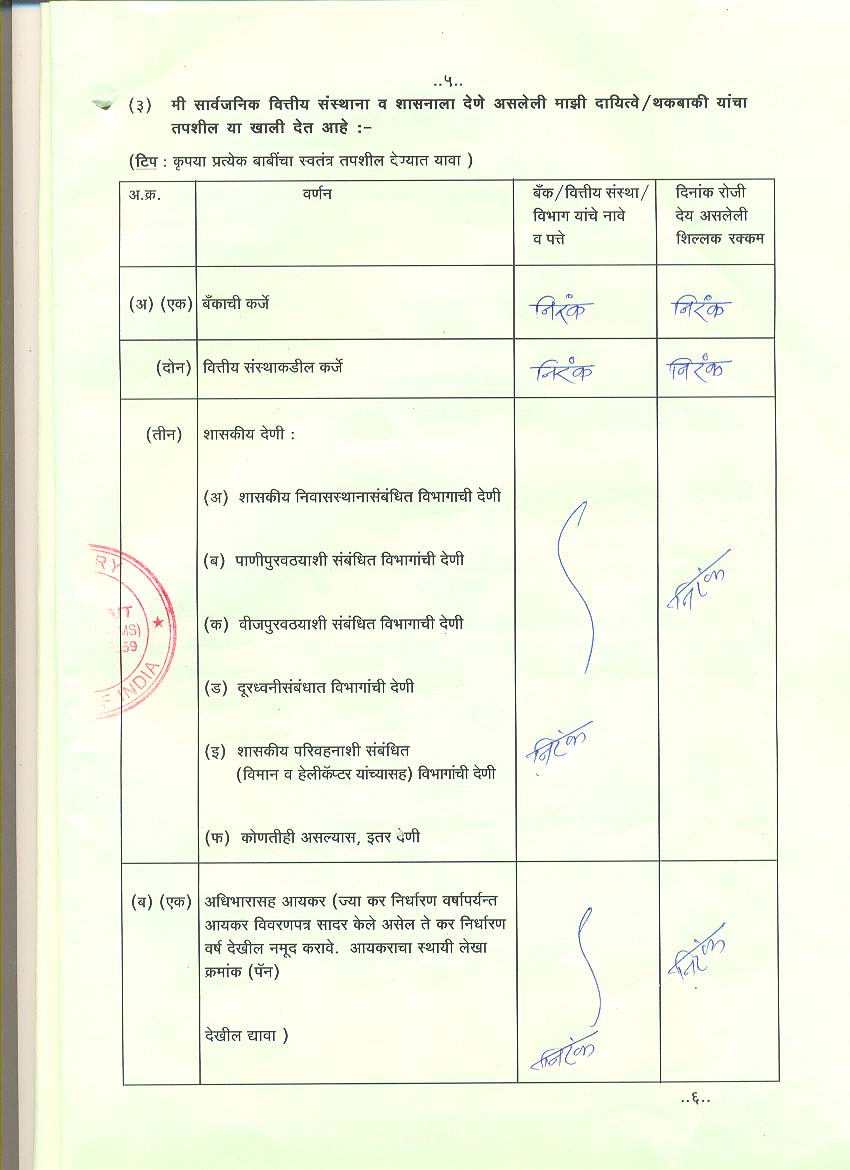 ..५..
(३) मी सार्वजनिक वित्तीय संस्थाना व शासनाला देणे असलेली माझी दायित्वे/थकबाकी यांचा
तपशील या खाली देत आहे :-
(टिप : कृपया प्रत्येक बाबींचा स्वतंत्र तपशील देण्यात यावा )
अ.क्र. वर्णन बँक/वित्तीय संस्था/ दिनांक रोजी
विभाग यांचे नावे देय असलेली
व पत्ते शिल्लक रक्कम
(अ) (एक) बँकाची कर्जे निरंक निरंक
(दोन) वित्तीय संस्थाकडील कर्जे निरंक निरंक
(तीन) शासकीय देणी :
(अ) शासकीय निवासस्थानासंबंधित विभागाची देणी
(ब) पाणीपुरवठयाशी संबंधित विभागांची देणी
निरंक
(क) वीजपुरवठयाशी संबंधित विभागाची देणी
(ड) दूरध्वनीसंबंधात विभागांची देणी
(इ) शासकीय परिवहनाशी संबंधित
निरंक
(विमान व हेलीकॅप्टर यांच्यासह) विभागांची देणी
(फ) कोणतीही असल्यास, इतर देणी
RY
MS)
59
INDIA
(ब) (एक) अधिभारासह आयकर (ज्या कर निर्धारण वर्षापर्यन्त
आयकर विवरणपत्र सादर केले असेल ते कर निर्धारण
वर्ष देखील नमूद करावे. आयकराचा स्थायी लेखा निरंक
क्रमांक (पॅन)
देखील द्यावा ) निरंक
..६..